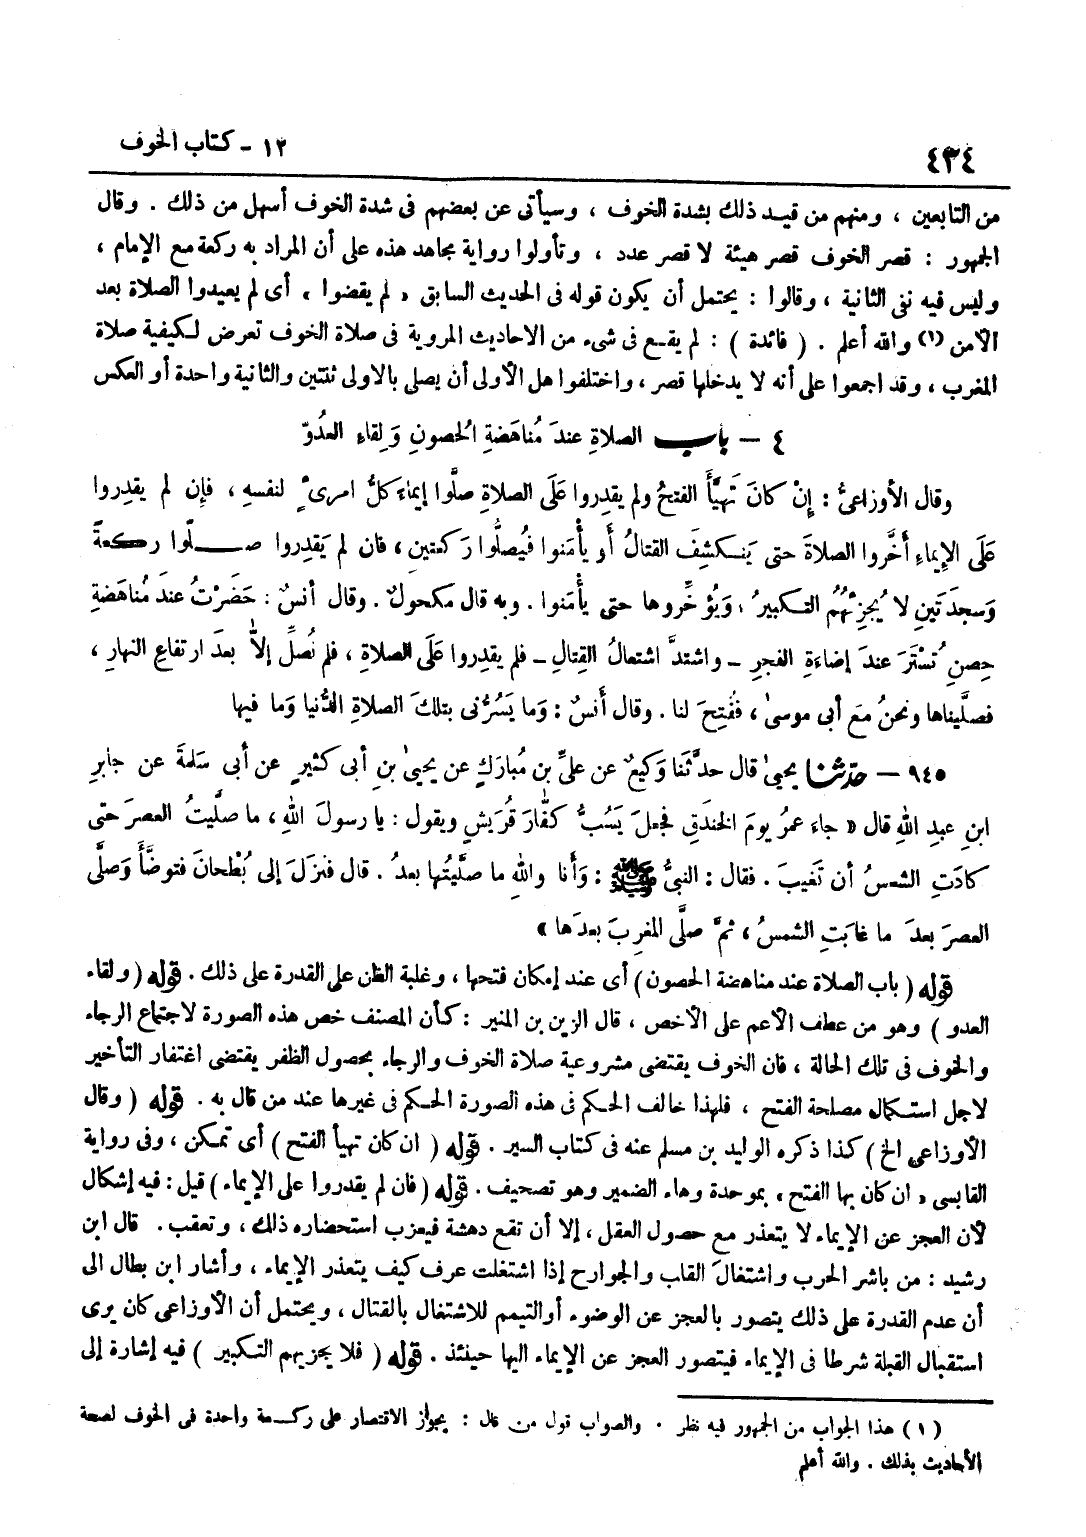 ٤٣٤
١٢ - كتاب الخوف
من التابعين ، ومنهم من قيد ذلك بشدة الخوف ، وسيأتى عن بعضهم فى شدة الخوف أسهل من ذلك . وقال
الجمهور : قصر الخوف قصر هيئة لا قصر عدد ، وتأولوا رواية مجاهد هذه على أن المراد به ركعة مع الإمام ،
وليس فيه نفى الثانية ، وقالوا : يحتمل أن يكون قوله فى الحديث السابق « لم يقضوا » أى لم يعيدوا الصلاة بعد
الأمن (١) والله أعلم . ( فائدة ) : لم يقع فى شىء من الاحاديث المروية فى صلاة الخوف تعرض لكيفية صلاة
المغرب ، وقد اجمعوا على أنه لا يدخلها قصر ، واختلفوا هل الأولى أن يصلى بالاولى ثنتين والثانية واحدة أو العكس
٤ - باب الصلاةِ عندَ مُناهَضةِ الحصونِ وَلِقاءِ العدُوّ
وقال الأوزاعىُّ : إِنْ كانَ تَهيَّأَ الفتحُ ولم يقدِروا عَلَى الصلاةِ صلَّوا إيماءً كلُّ امرىءٍ لنفسهِ ، فإِن لم يقدِروا
عَلَى الإيماءِ أَخَّروا الصلاةَ حتى يَنكشِفَ القتالُ أو يأْمَنوا فيُصلُّوا رَكعتينِ ، فان لم يَقدِروا صلَّوا ركعةً
وَسجدَتَينِ لا يُجزِئُهُمُ التكبيرُ ، ويُؤخِّروها حتى يأْمَنوا . وبه قال مكحولٌ . وقال أنسٌ : حَضَرْتُ عندَ مُناهَضةِ
حِصنِ تُسْتَرَ عندَ إضاءَةِ الفجرِ – واشتدَّ اشتعالُ القِتالِ – فلم يقدِروا عَلَى الصلاةِ ، فلم نُصلِّ إلاَّ بعدَ ارتفاعِ النهارِ ،
فصلَّيناها ونحنُ مَعَ أبى موسىٰ ، ففُتِحَ لنا . وقال أَنسٌ : وَما يَسُرُّنى بتلكَ الصلاةِ الدُّنيا وَما فيها
٩٤٥ – حدثنا يحيىٰ قال حدَّثَنا وَكيعٌ عن علىِّ بن مُبارَكٍ عن يحيىٰ بنِ أبى كثيرٍ عن أبى سَلمةَ عن جابرِ
ابنِ عبدِ اللهِ قال « جاءَ عمرُ يومَ الخندَقِ فجعلَ يَسُبُّ كفّارَ قُرَيشٍ ويقول : يا رسولَ اللهِ ، ما صلَّيتُ العصرَ حتى
كادَتِ الشمسُ أن تَغيبَ . فقال : النبىُّ ﷺ : وَأنا واللهِ ما صلَّيتُها بعدُ . قال فنزَلَ إلى بُطْحانَ فتوضَّأَ وَصلَّى
العصرَ بعدَ ما غابَتِ الشمسُ ، ثمَّ صلَّى المغرِبَ بعدَها »
قوله ( باب الصلاة عند مناهضة الحصون ) أى عند إمكان فتحها ، وغلبة الظن على القدرة على ذلك . قوله ( ولقاء
العدو ) وهو من عطف الأعم على الأخص ، قال الزين بن المنير : كأن المصنف خص هذه الصورة لاجتماع الرجاء
والخوف فى تلك الحالة ، فان الخوف يقتضى مشروعية صلاة الخوف والرجاء بحصول الظفر يقتضى اغتفار التأخير
لاجل استكمال مصلحة الفتح ، فلهذا خالف الحكم فى هذه الصورة الحكم فى غيرها عند من قال به . قوله ( وقال
الأوزاعى الخ ) كذا ذكره الوليد بن مسلم عنه فى كتاب السير . قوله ( ان كان تهيأ الفتح ) أى تمكن ، وفى رواية
القابسى « ان كان بها الفتح » بموحدة وهاء الضمير وهو تصحيف . قوله ( فان لم يقدروا على الإيماء ) قيل : فيه إشكال
لأن العجز عن الإيماء لا يتعذر مع حصول العقل ، إلا أن تقع دهشة فيعزب استحضاره ذلك ، وتعقب . قال ابن
رشيد : من باشر الحرب واشتغال القلب والجوارح إذا اشتغلت عرف كيف يتعذر الإيماء ، وأشار ابن بطال الى
أن عدم القدرة على ذلك يتصور بالعجز عن الوضوء أو التيمم للاشتغال بالقتال ، ويحتمل أن الأوزاعى كان يرى
استقبال القبلة شرطا فى الإيماء فيتصور العجز عن الإيماء اليها حينئذ . قوله ( فلا يجزيهم التكبير ) فيه إشارة إلى
( ١ ) هذا الجواب من الجمهور فيه نظر . والصواب قول من قال : بجواز الاقتصار على ركعة واحدة فى الخوف لصحة
الأحاديث بذلك . والله أعلم